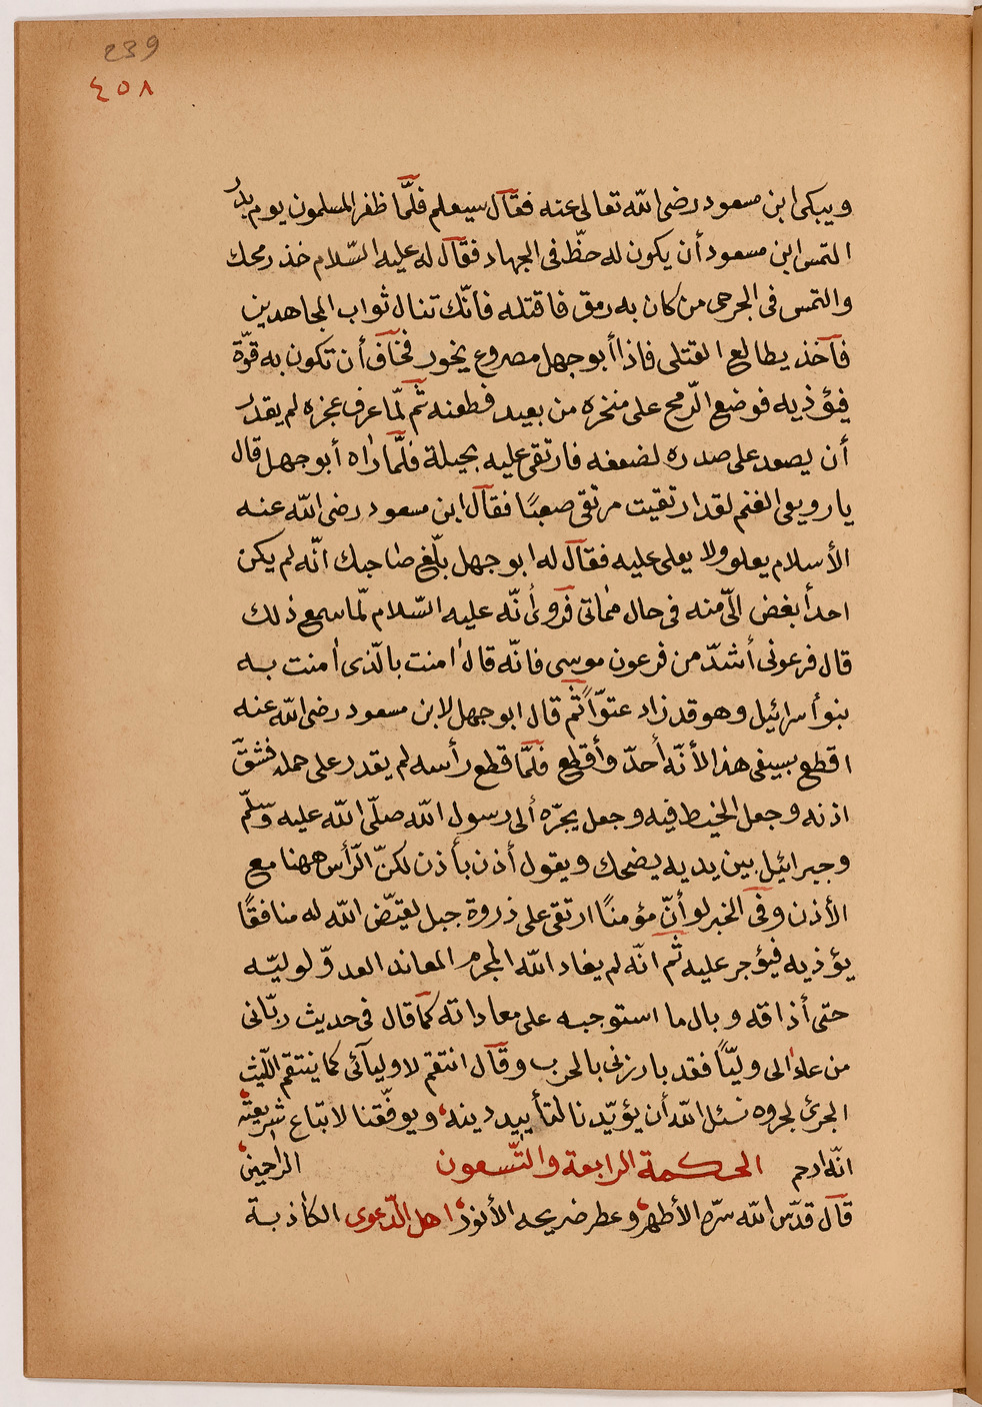 239
٤٥٨
ويبكى ابن مسعود رضى الله تعالى عنه فقال سيعلم فلمّا ظفر المسلمون يوم بدر
التمس ابن مسعود أن يكون له حظّ فى الجهاد فقال له عليه السّلام خذ رمحك
والتمس فى الجرحى من كان به رمق فاقتله فانّك تنال ثواب المجاهدين
فآخذ يطالع القتلى فاذا أبو جهل مصروع يخور فخاف أن تكون به قوّة
فيؤذيه فوضع الرّمح على منخره من بعيد فطعنه ثمّ لمّا عرف عجزه لم يقدر
أن يصعد على صدره لضعفه فارتقى عليه بحيلة فلمّا رٰاه أبو جهل قال
يا رويعى الغنم لقد ارتقيت مرتقى صعبًا فقال ابن مسعود رضى الله عنه
الأسلام يعلو ولا يعلى عليه فقال له ابو جهل بلّغ صاحبك انّه لم يكن
احد أبغض الىّ منه فى حال مماتى فروى أنّه عليه السّلام لمّا سمع ذلك
قال فرعونى أشدّ من فرعون موسى فانّه قال اٰمنت بالّذى اٰمنت به
بنو أسرائيل وهو قد زاد عتوّاً ثمّ قال ابو جهل لابن مسعود رضى الله عنه
اقطع بسيفى هذا لأنّه أحدّ وأقطع فلمّا قطع رأسه لم يقدر على حمله فشقّ
اذنه وجعل الخيط فيه وجعل يجرّه ألى رسول الله صلّى الله عليه وسلّم
وجبرائيل بين يديه يضحك ويقول أذن بأذن لكنّ الرّأس ههنا مع
الأذن وفى الخبر لو أنّ مؤمنًا ارتقى على ذروة جبل لقيّض الله له منافقًا
يؤذيه فيؤجر عليه ثمّ انّه لم يغاد الله المجرم المعاند العدوّ لوليّه
حتى أذاقه وبال ما استوجبه على معاداته كما قال فى حديث ربّانى
من عادٰ الى وليّاً فقد بارزنى بالحرب وقال انتقم لاوليآئى كما ينتقم اللّيث
الجرئ لجروه نسئل الله أن يؤيّدنا لتأييد دينه، ويوفّقنا لاتّباع شريعته،
انّه ارحم الحكمة الرابعة والتّسعون الراحمين
قال قدّس الله سرّه الأطهر، وعطر ضريحه الأنور، اهل الدّعوى الكاذبة